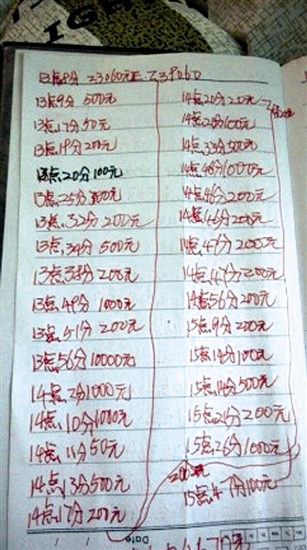 13点8分 23060元 239060
13点9分 500元
13点17分 50元
13点19分 200元
13点20分 100元
13点25分
13点32分 200元
13点34分 500元
13点38分 200元
13点49分 1000元
13点51分 200元
13点56分 10000元
14点2分 1000元
14点10分 1000元
14点11分 50元
14点13分 500元
14点17分 200元
14点20分 20元
14点28分 100元
14点33分 500元
14点40分 1000元
14点46分 200元
14点46分 200元
14点47分 2000元
14点47分 200元
14点56分 200元
15点9分 200元
15点14分 100元
15点14分 500元
15点21分 200元
15点26分 1000元
200元
100元
Date